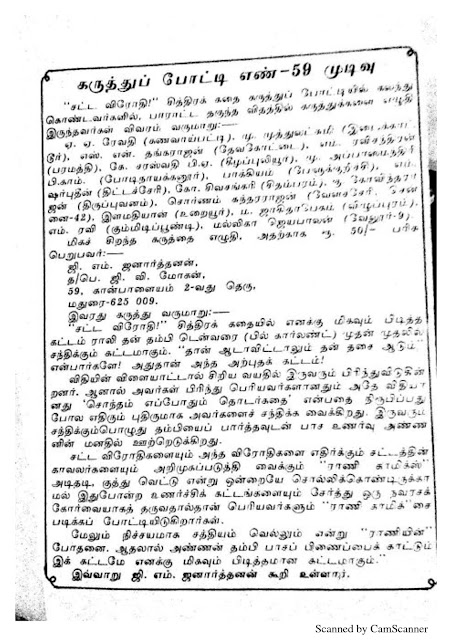 கருத்துப் போட்டி எண்-59 முடிவு
"சட்ட விரோதி!" சித்திரக் கதை கருத்துப் போட்டியில் கலந்து
கொண்டவர்களில், பாராட்டத் தகுந்த விதத்தில் கருத்துக்களை எழுதி
இருந்தவர்கள் விவரம் வருமாறு:—
ஏ. ஏ. ரேவதி (கணவாய்பட்டி), மு. முத்துலட்சுமி (இடைக்காட்
டூர்), எஸ். என். தங்கராஜன் (தேவகோட்டை), எம். ரவிச்சந்திரன்
(பரமத்தி), கே. சரஸ்வதி பி.ஏ. (கீழப்புலியூர்), மு. அப்பாமைத்தீன்
பி.காம். (போடிநாயக்கனூர்), பாக்கியம் எம்.
ஷர்புதீன் (திட்டச்சேரி), கோ. சிவசங்கரி (சிதம்பரம்), ரூ. கோவிந்தரா
ஜன் (திருப்புவனம்), சொர்ணம் சுந்தரராஜன் (வேளச்சேரி, சென்
னை-42), இளமதியான் (உறையூர்), ம. ஜாகிதாபேகம் (விழுப்புரம்),
எம். ரவி (கும்மிடிப்பூண்டி), மல்லிகா ஜெயபாலன் (வேலூர்-9).
மிகச் சிறந்த கருத்தை எழுதி, அதற்காக ரூ. 50/— பரிசு
பெறுபவர்:—
ஜி. எம். ஜனார்த்தனன்,
த/பெ. ஜி. வி. மோகன்,
59, கான்பாளையம் 2-வது தெரு,
மதுரை-625 009.
இவரது கருத்து வருமாறு:—
"சட்ட விரோதி!" சித்திரக் கதையில் எனக்கு மிகவும் பிடித்த
கட்டம் ராலி தன் தம்பி டென்வரை (பில் கார்லண்ட்) முதன் முதலில்
சந்திக்கும் கட்டமாகும். "தான் ஆடாவிட்டாலும் தன் தசை ஆடும்"
என்பார்களே! அதுதான் அந்த அற்புதக் கட்டம்!
விதியின் விளையாட்டால் சிறிய வயதில் இருவரும் பிரிந்துவிடுகின்
றனர். ஆனால் அவர்கள் பிரிந்து பெரியவர்களானதும் அதே விதியா
னது 'சொந்தம் எப்போதும் தொடர்கதை' என்பதை நிரூபிப்பது
போல எதிரும் புதிருமாக அவர்களைச் சந்திக்க வைக்கிறது. இருவரும்
சந்திக்கும்பொழுது தம்பியைப் பார்த்தவுடன் பாச உணர்வு அண்ண
னின் மனதில் ஊற்றெடுக்கிறது.
சட்ட விரோதிகளையும் அந்த விரோதிகளை எதிர்க்கும் சட்டத்தின்
காவலர்களையும் அறிமுகப்படுத்தி வைக்கும் "ராணி காமிக்ஸ்"
அடிதடி, குத்து வெட்டு என்று ஒன்றையே சொல்லிக்கொண்டிருக்கா
மல் இதுபோன்ற உணர்ச்சிக் கட்டங்களையும் சேர்த்து ஒரு நவரசக்
கோர்வையாகத் தருவதால்தான் பெரியவர்களும் "ராணி காமிக்"சை
படிக்கப் போட்டியிடுகிறார்கள்.
மேலும் நிச்சயமாக சத்தியம் வெல்லும் என்று "ராணியின்"
போதனை. ஆதலால் அண்ணன் தம்பி பாசப் பிணைப்பைக் காட்டும்
இக் கட்டமே எனக்கு மிகவும் பிடித்தமான கட்டமாகும்."
இவ்வாறு ஜி. எம். ஜனார்த்தனன் கூறி உள்ளார்.
Scanned by CamScanner